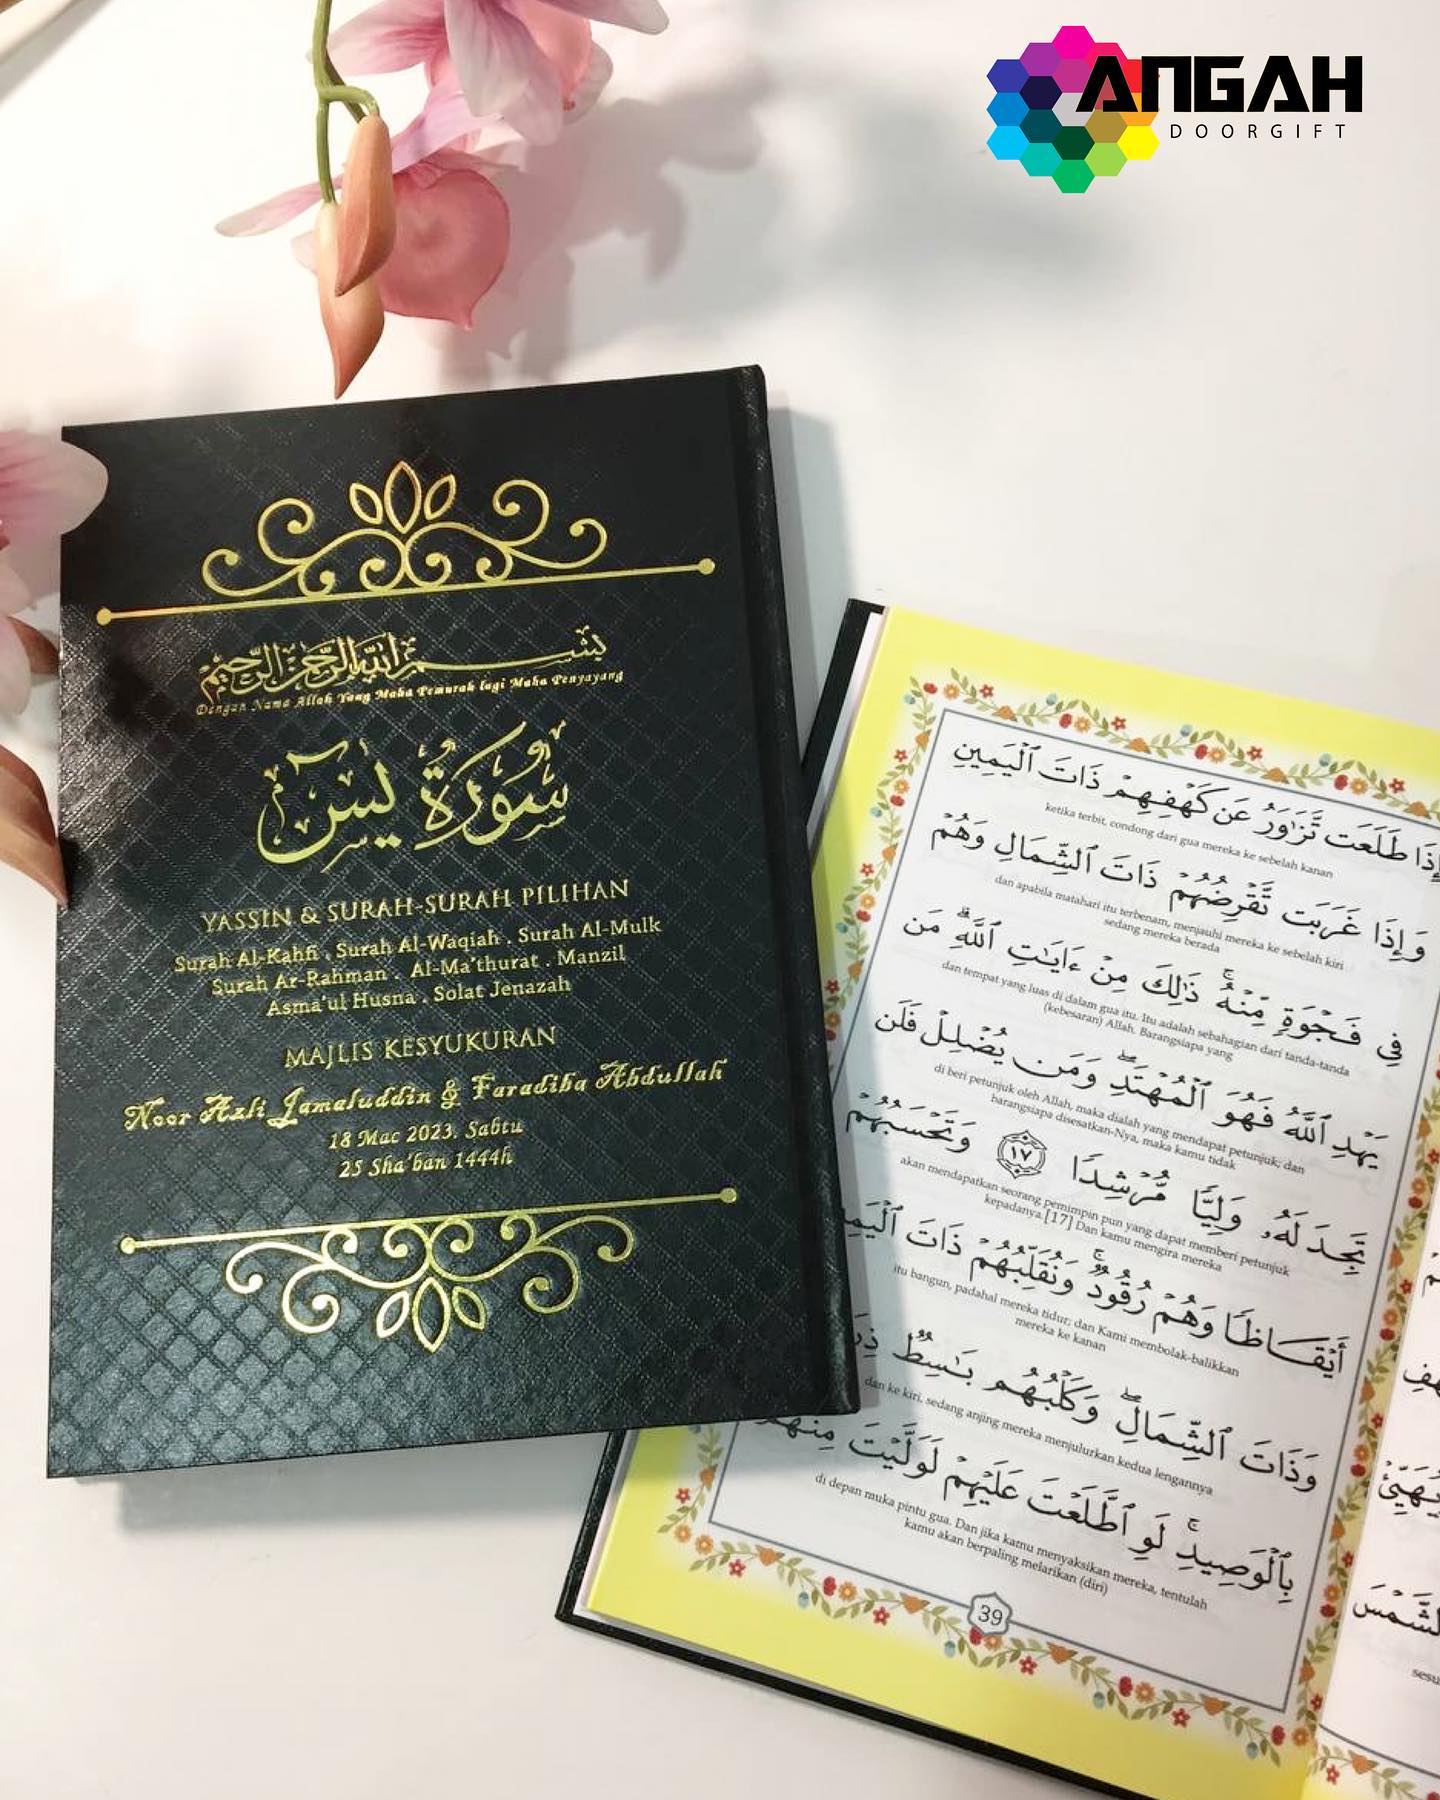 ANGAH
DOORGIFT
بسم الله الرحمن الرحيم
Dengan Nama Allah Yang Maha Pemurah lagi Maha Penyayang
سُورَةُ يسٓ
YASSIN & SURAH-SURAH PILIHAN
Surah Al-Kahfi . Surah Al-Waqiah . Surah Al-Mulk
Surah Ar-Rahman . Al-Ma'thurat . Manzil
Asma'ul Husna . Solat Jenazah
MAJLIS KESYUKURAN
Noor Azli Jamaluddin & Faradiba Abdullah
18 Mac 2023. Sabtu
25 Sha'ban 1444h
إِذَا طَلَعَت تَّزَٰوَرُ عَن كَهْفِهِمْ ذَاتَ ٱلْيَمِينِ
ketika terbit, condong dari gua mereka ke sebelah kanan
وَإِذَا غَرَبَت تَّقْرِضُهُمْ ذَاتَ ٱلشِّمَالِ وَهُمْ
dan apabila matahari itu terbenam, menjauhi mereka ke sebelah kiri
sedang mereka berada
فِى فَجْوَةٍ مِّنْهُ ۚ ذَٰلِكَ مِنْ ءَايَٰتِ ٱللَّهِ ۗ مَن
dan tempat yang luas di dalam gua itu. Itu adalah sebahagian dari tanda-tanda
(kebesaran) Allah. Barangsiapa yang
يَهْدِ ٱللَّهُ فَهُوَ ٱلْمُهْتَدِ ۖ وَمَن يُضْلِلْ فَلَن
di beri petunjuk oleh Allah, maka dialah yang mendapat petunjuk; dan
barangsiapa disesatkan-Nya, maka kamu tidak
تَجِدَ لَهُۥ وَلِيًّا مُّرْشِدًا ١٧ وَتَحْسَبُهُمْ
akan mendapatkan seorang pemimpin pun yang dapat memberi petunjuk
kepadanya.[17] Dan kamu mengira mereka
أَيْقَاظًا وَهُمْ رُقُودٌ ۚ وَنُقَلِّبُهُمْ ذَاتَ
itu bangun, padahal mereka tidur; dan Kami membolak-balikkan
mereka ke kanan
وَذَاتَ ٱلشِّمَالِ ۖ وَكَلْبُهُم بَٰسِطٌ
dan ke kiri, sedang anjing mereka menjulurkan kedua lengannya
بِٱلْوَصِيدِ ۚ لَوِ ٱطَّلَعْتَ عَلَيْهِمْ لَوَلَّيْتَ
di depan muka pintu gua. Dan jika kamu menyaksikan mereka, tentulah
kamu akan berpaling melarikan (diri)
39